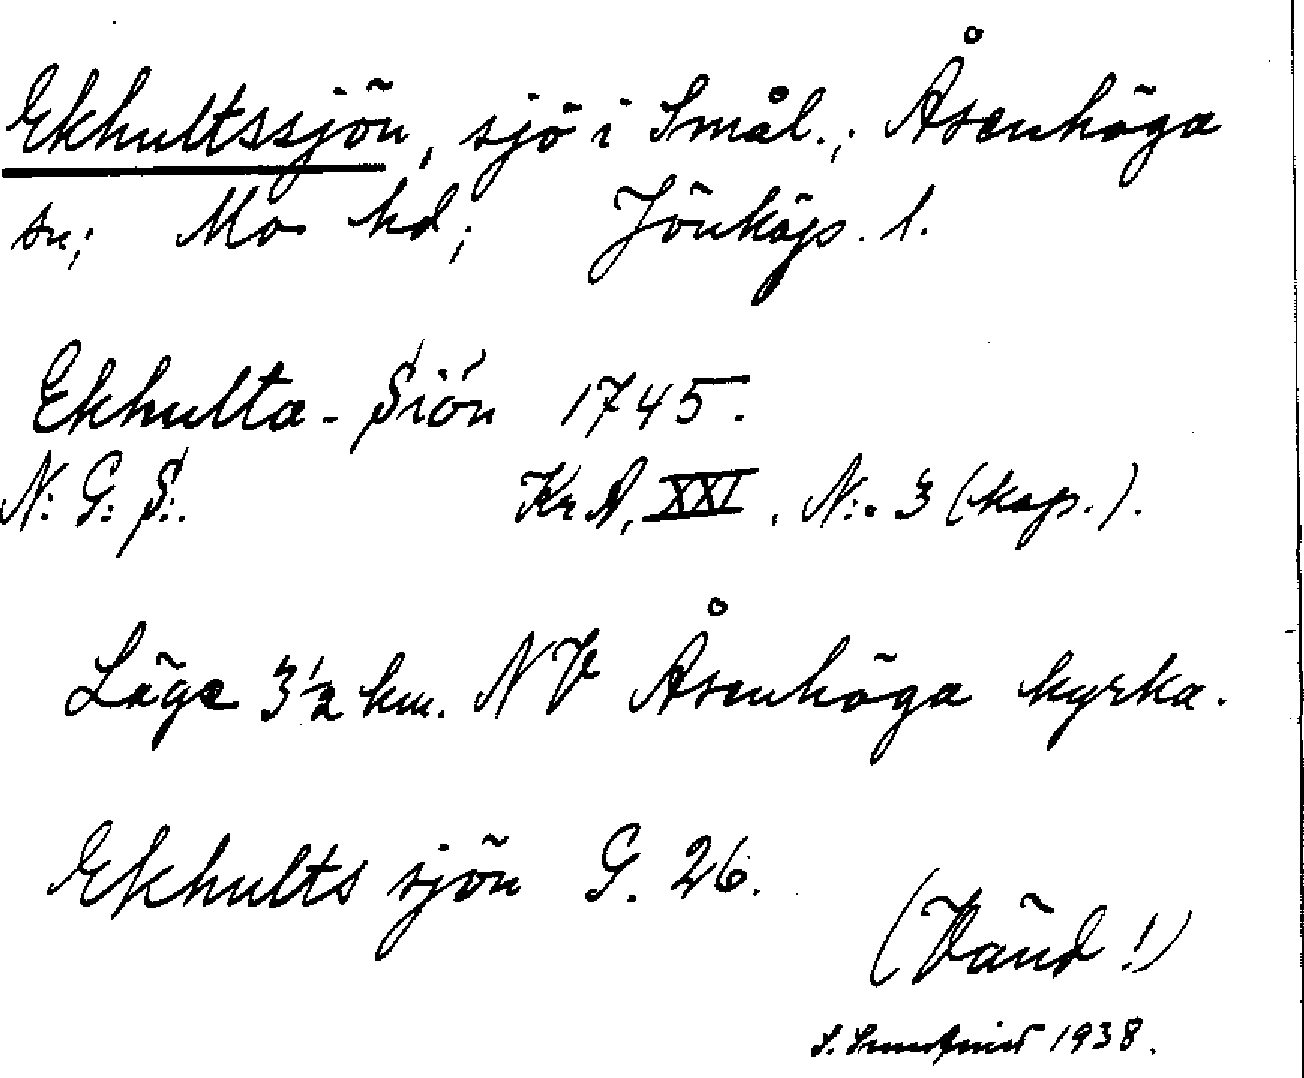 Ekhultssjön, sjö i Smål.; Åsenhöga
sn; Mo hd; Jönköp. l.
Ekhulta-Siön 1745.
N: G: S:. Kr A, XXI, N:. 3 (kop.).
Läge 3 1/2 km. NV Åsenhöga kyrka.
Ekhults sjön G. 26.
(Vänd!)
S. 1938.